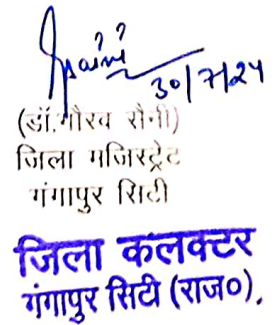 Saini
30/7/24
(डॉ.गौरव सैनी)
जिला मजिस्ट्रेट
गंगापुर सिटी
जिला कलक्टर
गंगापुर सिटी (राज०)